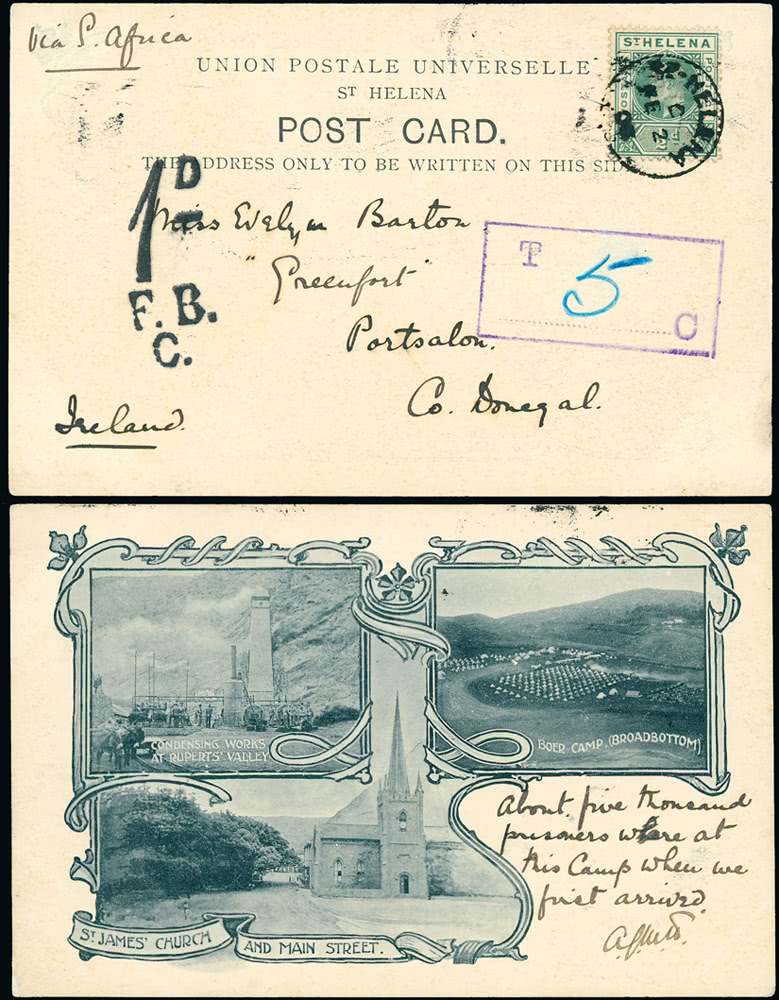 Via S. Africa
UNION POSTALE UNIVERSELLE
ST HELENA
POST CARD.
THE ADDRESS ONLY TO BE WRITTEN ON THIS SIDE
ST HELENA
POSTAGE
ST. HELENA
C
FE 2
1D
F.B.
C.
Miss Evelyn Barton
"Greenfort"
Portsalon.
Co. Donegal.
Ireland.
T 5 C
CONDENSING WORKS
AT RUPERTS' VALLEY
BOER CAMP. (BROADBOTTOM)
ST JAMES' CHURCH AND MAIN STREET.
About five thousand
prisoners were at
this Camp when we
first arrived.